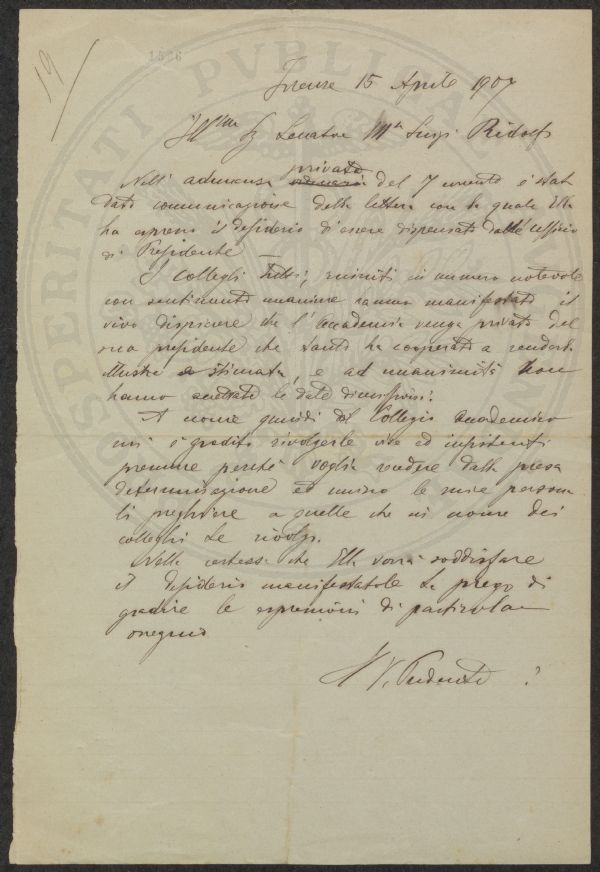 19
1526
Firenze 15 Aprile 1907
Ill.mo Sig. Senatore M.se Luigi Ridolfi
privata
Nell' adunanza ordinaria del 7 corrente è stata
data comunicazione della lettera con la quale Ella
ha espresso il desiderio d'essere dispensato dall' ufficio
di Presidente —
I Colleghi tutti, riuniti in numero notevole
con sentimento unanime hanno manifestato il
vivo dispiacere che l' Accademia venga privata del
suo presidente che tanto ha cooperato a renderla
illustre e stimata, e ad unanimità non
hanno accettato le date dimissioni.
A nome quindi del Collegio Accademico
mi è gradito rivolgerle vive ed insistenti
premure perché voglia recedere dalla presa
determinazione ed unisco le mie persona
li preghiere a quelle che in nome dei
colleghi Le rivolgo.
Nella certezza che Ella vorrà soddisfare
il desiderio manifestatole La prego di
gradire le espressioni di particolare
ossequio
Il V. Presidente
PROSPERITATI PVBLICAE